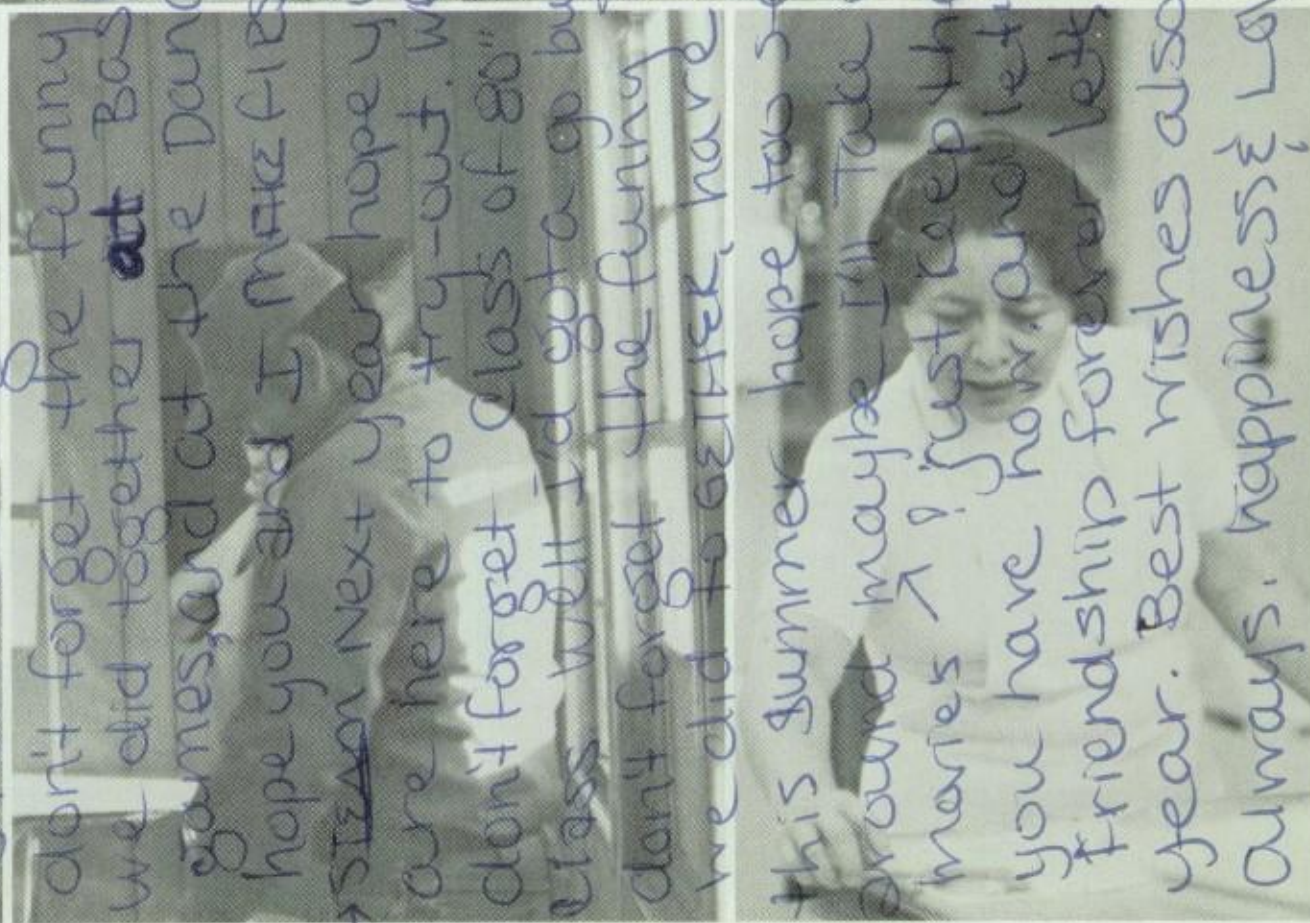 don't forget the funny
we did together at Bas
games, and at the Danc
hope you and I MAKE
STEADY Next year hope y
are here to try-out. w
don't forget "Class of 80"
class well I'd gota go by
don't forget the funny
we did toGETHER, have
this summer hope too s
around maybe I'll Take
movies just keep the
you have now and let
friendship forever lets
year. Best wishes also
always. happiness & Lov